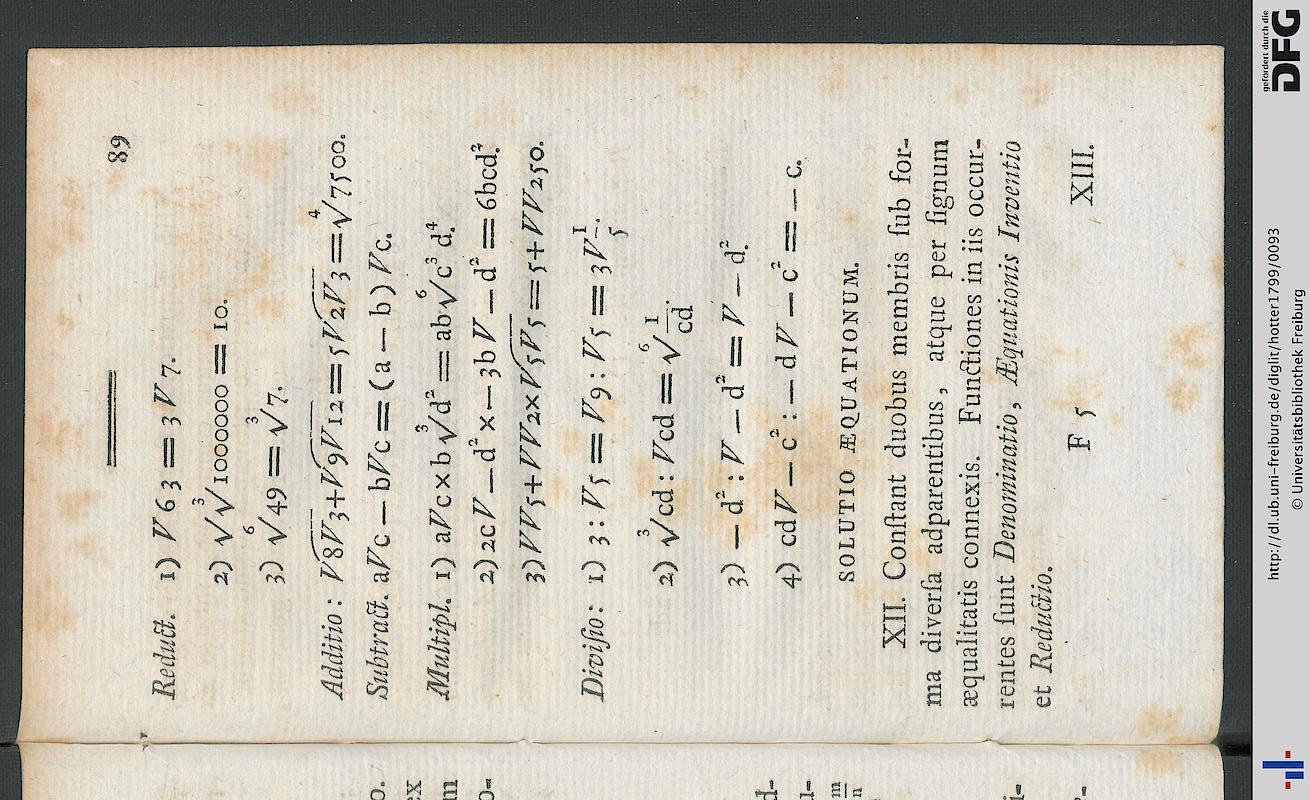 89
Reduct. 1) √63 = 3√7.
2) √∛1000000 = 10.
3) ⁶√49 = ³√7.
Additio: √8√3+√9√12=5√2√3=⁴√7500.
Subtract. a√c — b√c = (a — b) √c.
Multipl. 1) a√c × b ³√d² = ab ⁶√c³ d⁴.
2) 2c√—d² × —3b√—d² = 6bcd².
3) √√5+√√2×√5√5=5+√√250.
Diviſio: 1) 3 : √5 = √9 : √5 = 3√1/5.
2) ³√cd : √cd = ⁶√1/cd.
3) — d² : √ — d² = √ — d².
4) cd√ — c² : — d√ — c² = — c.
SOLUTIO ÆQUATIONUM.
XII. Conſtant duobus membris ſub for-
ma diverſa adparentibus, atque per ſignum
æqualitatis connexis. Functiones in iis occur-
rentes ſunt Denominatio, Æquationis Inventio
et Reductio.
F 5 XIII.
gefördert durch die
DFG
http://dl.ub.uni-freiburg.de/diglit/hotter1799/0093
© Universitätsbibliothek Freiburg